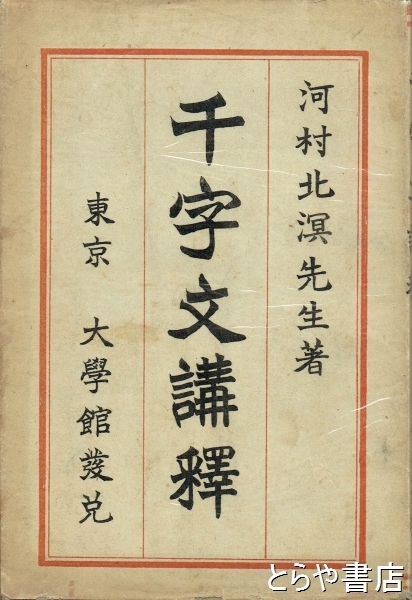 河村北溟先生著
千字文講釋
東京 大學館發兌
とらや書店